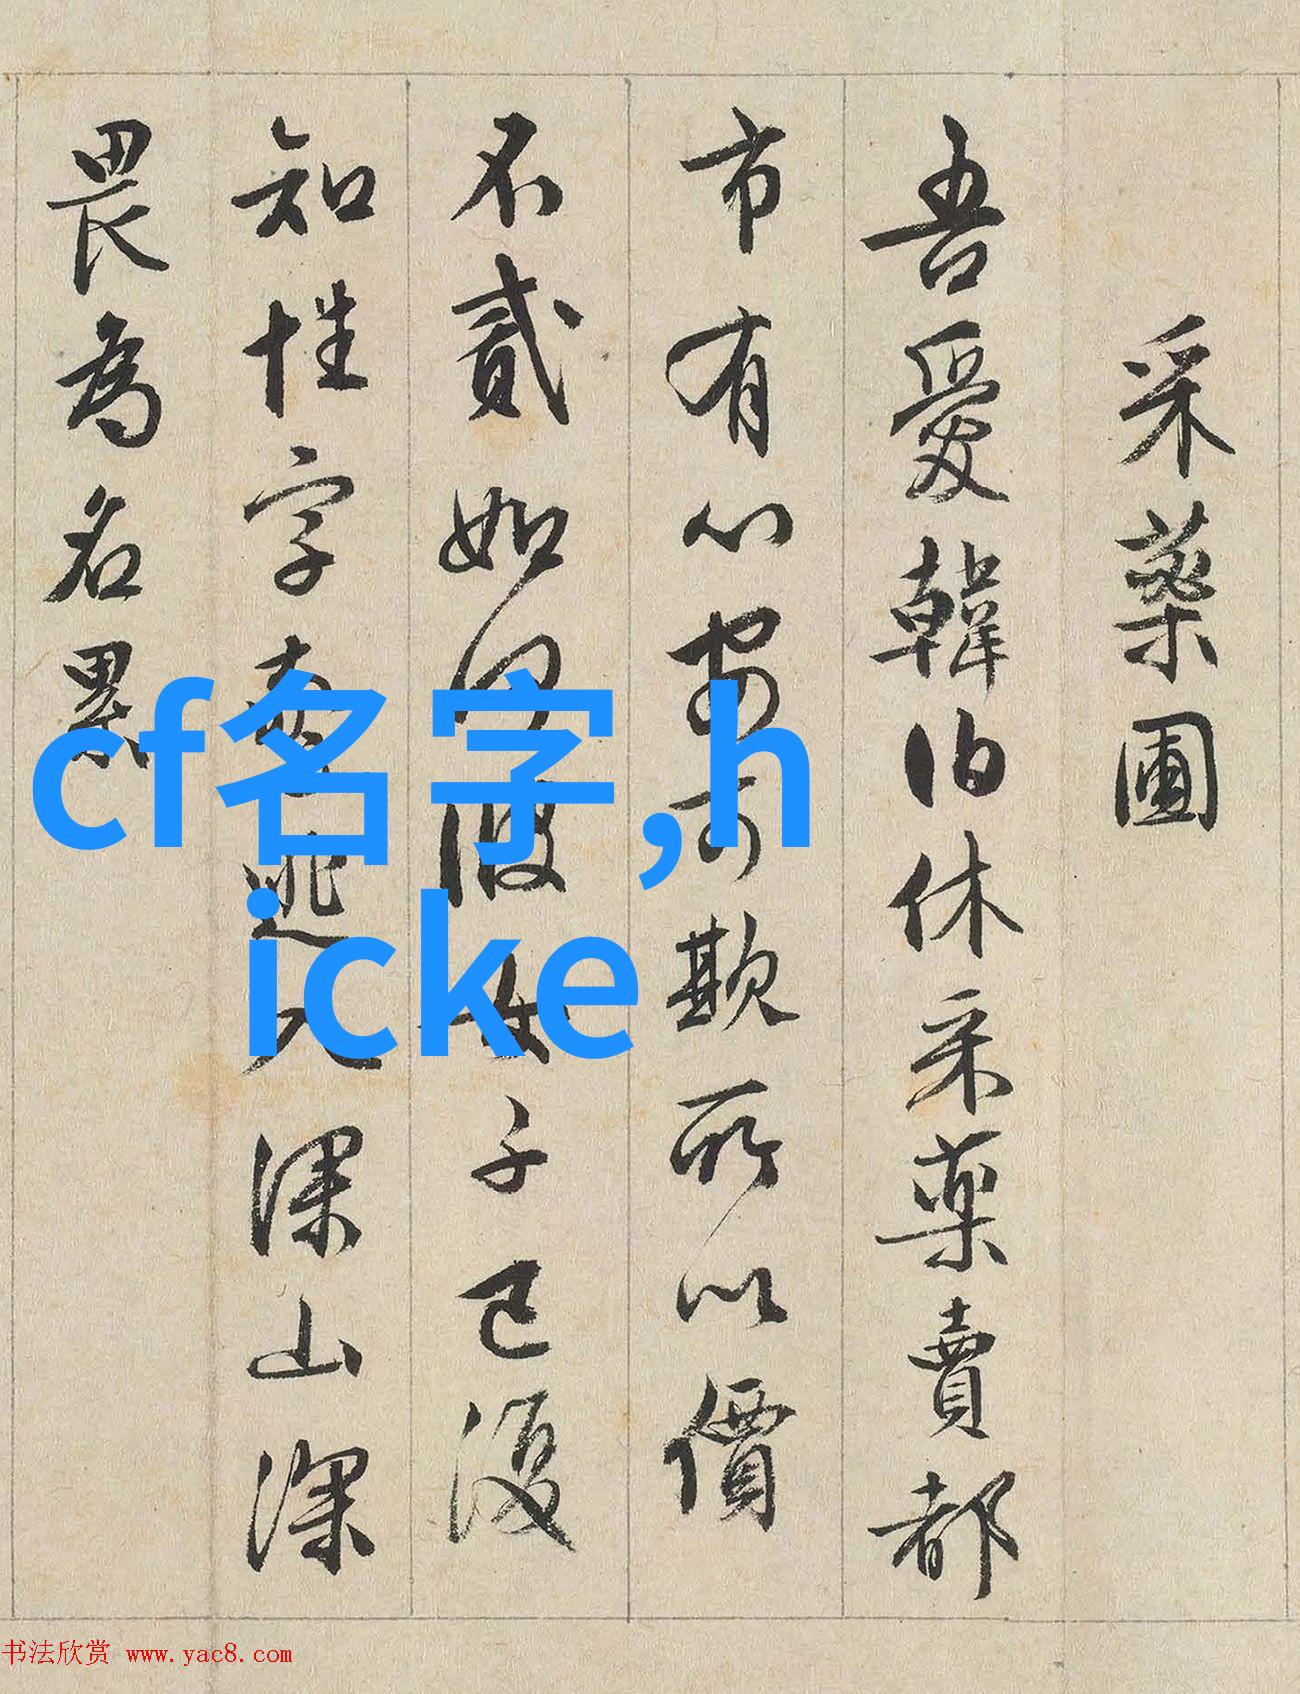 采藥圃
吾愛韓伯休采藥賣都
市有心安可欺所以價
不貳如何彼女子已復
知姓字逃入深山深
畏為名累
cf名字,h
icke
书法欣赏 www.yac8.com